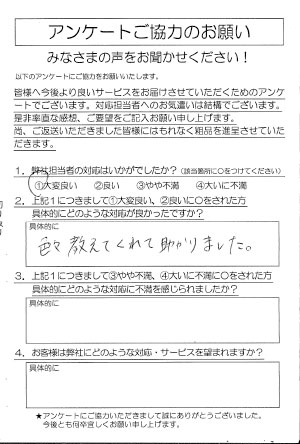 アンケートご協力のお願い
みなさまの声をお聞かせください！
以下のアンケートにご協力をお願いいたします。
皆様へ今後より良いサービスをお届けさせていただくためのアンケ
ートでございます。対応担当者へのお気遣いは結構でございます。
是非率直な感想、ご要望をご記入お願い申し上げます。
尚、ご返送いただきました皆様にはもれなく粗品を進呈させていた
だきます。
1．弊社担当者の対応はいかがでしたか？（該当箇所に○をつけてください）
①大変良い ②良い ③やや不満 ④大いに不満
2．上記１につきまして①大変良い、②良いに○をされた方
具体的にどのような対応が良かったですか？
具体的に
色々教えてくれて助かりました。
3．上記１につきまして③やや不満、④大いに不満に○をされた方
具体的にどのような対応に不満を感じられましたか？
具体的に
4．お客様は弊社にどのような対応・サービスを望まれますか？
具体的に
★アンケートにご協力いただきまして誠にありがとうございました。
今後とも何卒宜しくお願い申し上げます。